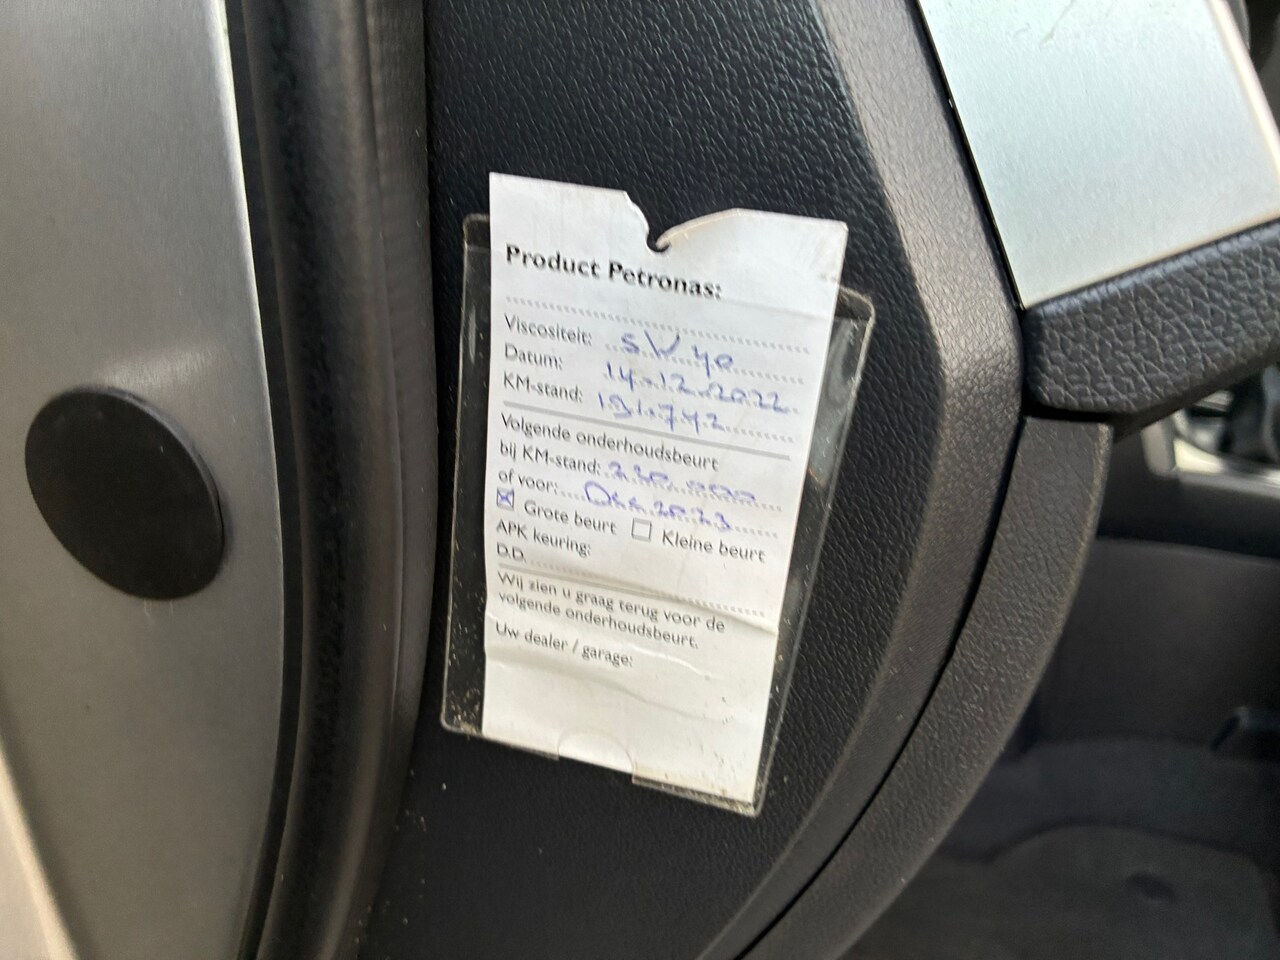 Product Petronas:
Viscositeit: 5W40
Datum: 14.12.2022
KM-stand: 191.742
Volgende onderhoudsbeurt
bij KM-stand: 230.000
of voor: Dec 2023
Grote beurt Kleine beurt
APK keuring:
D.D.
Wij zien u graag terug voor de
volgende onderhoudsbeurt.
Uw dealer / garage: